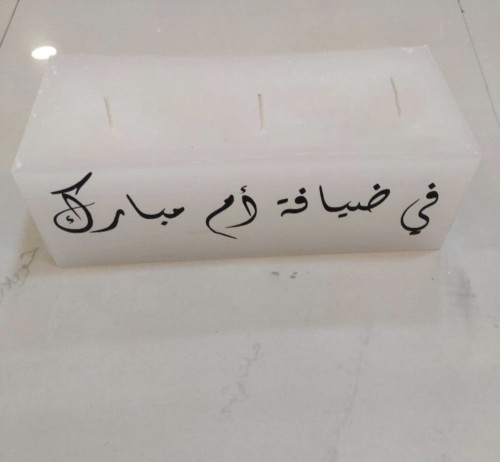 في ضيافة أم مبارك